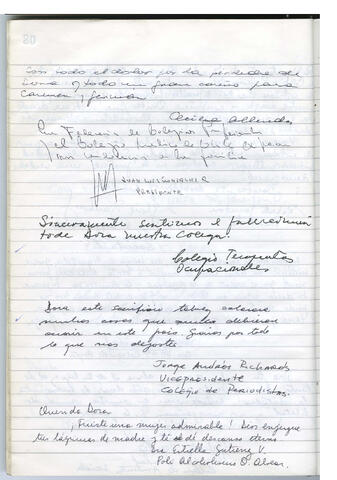 Con todo el dolor por la perdida de
Dora y todo mi gran cariño para
Carmen y Germán
Cecilia Allende
La Federación de Colegios Profesionales
y el Colegio Médico de Chile
a la familia
JUAN LUIS GONZALEZ R
PRESIDENTE
Sinceramente sentimos el fallecimien
to de Dora nuestra Colega.
Colegio Terapeutas
Ocupacionales
Dora este sacrificio
muchas cosas que nunca debieron
ocurrir en este país. Gracias por todo
lo que nos dejaste
Jorge Andrés Richards
Vicepresidente
Colegio de Periodistas.
Querida Dora
¡Fuiste una mujer admirable! Dios enjugue
tus lágrimas de madre y te dé descanso eterno
Estrella Gutiérrez V.